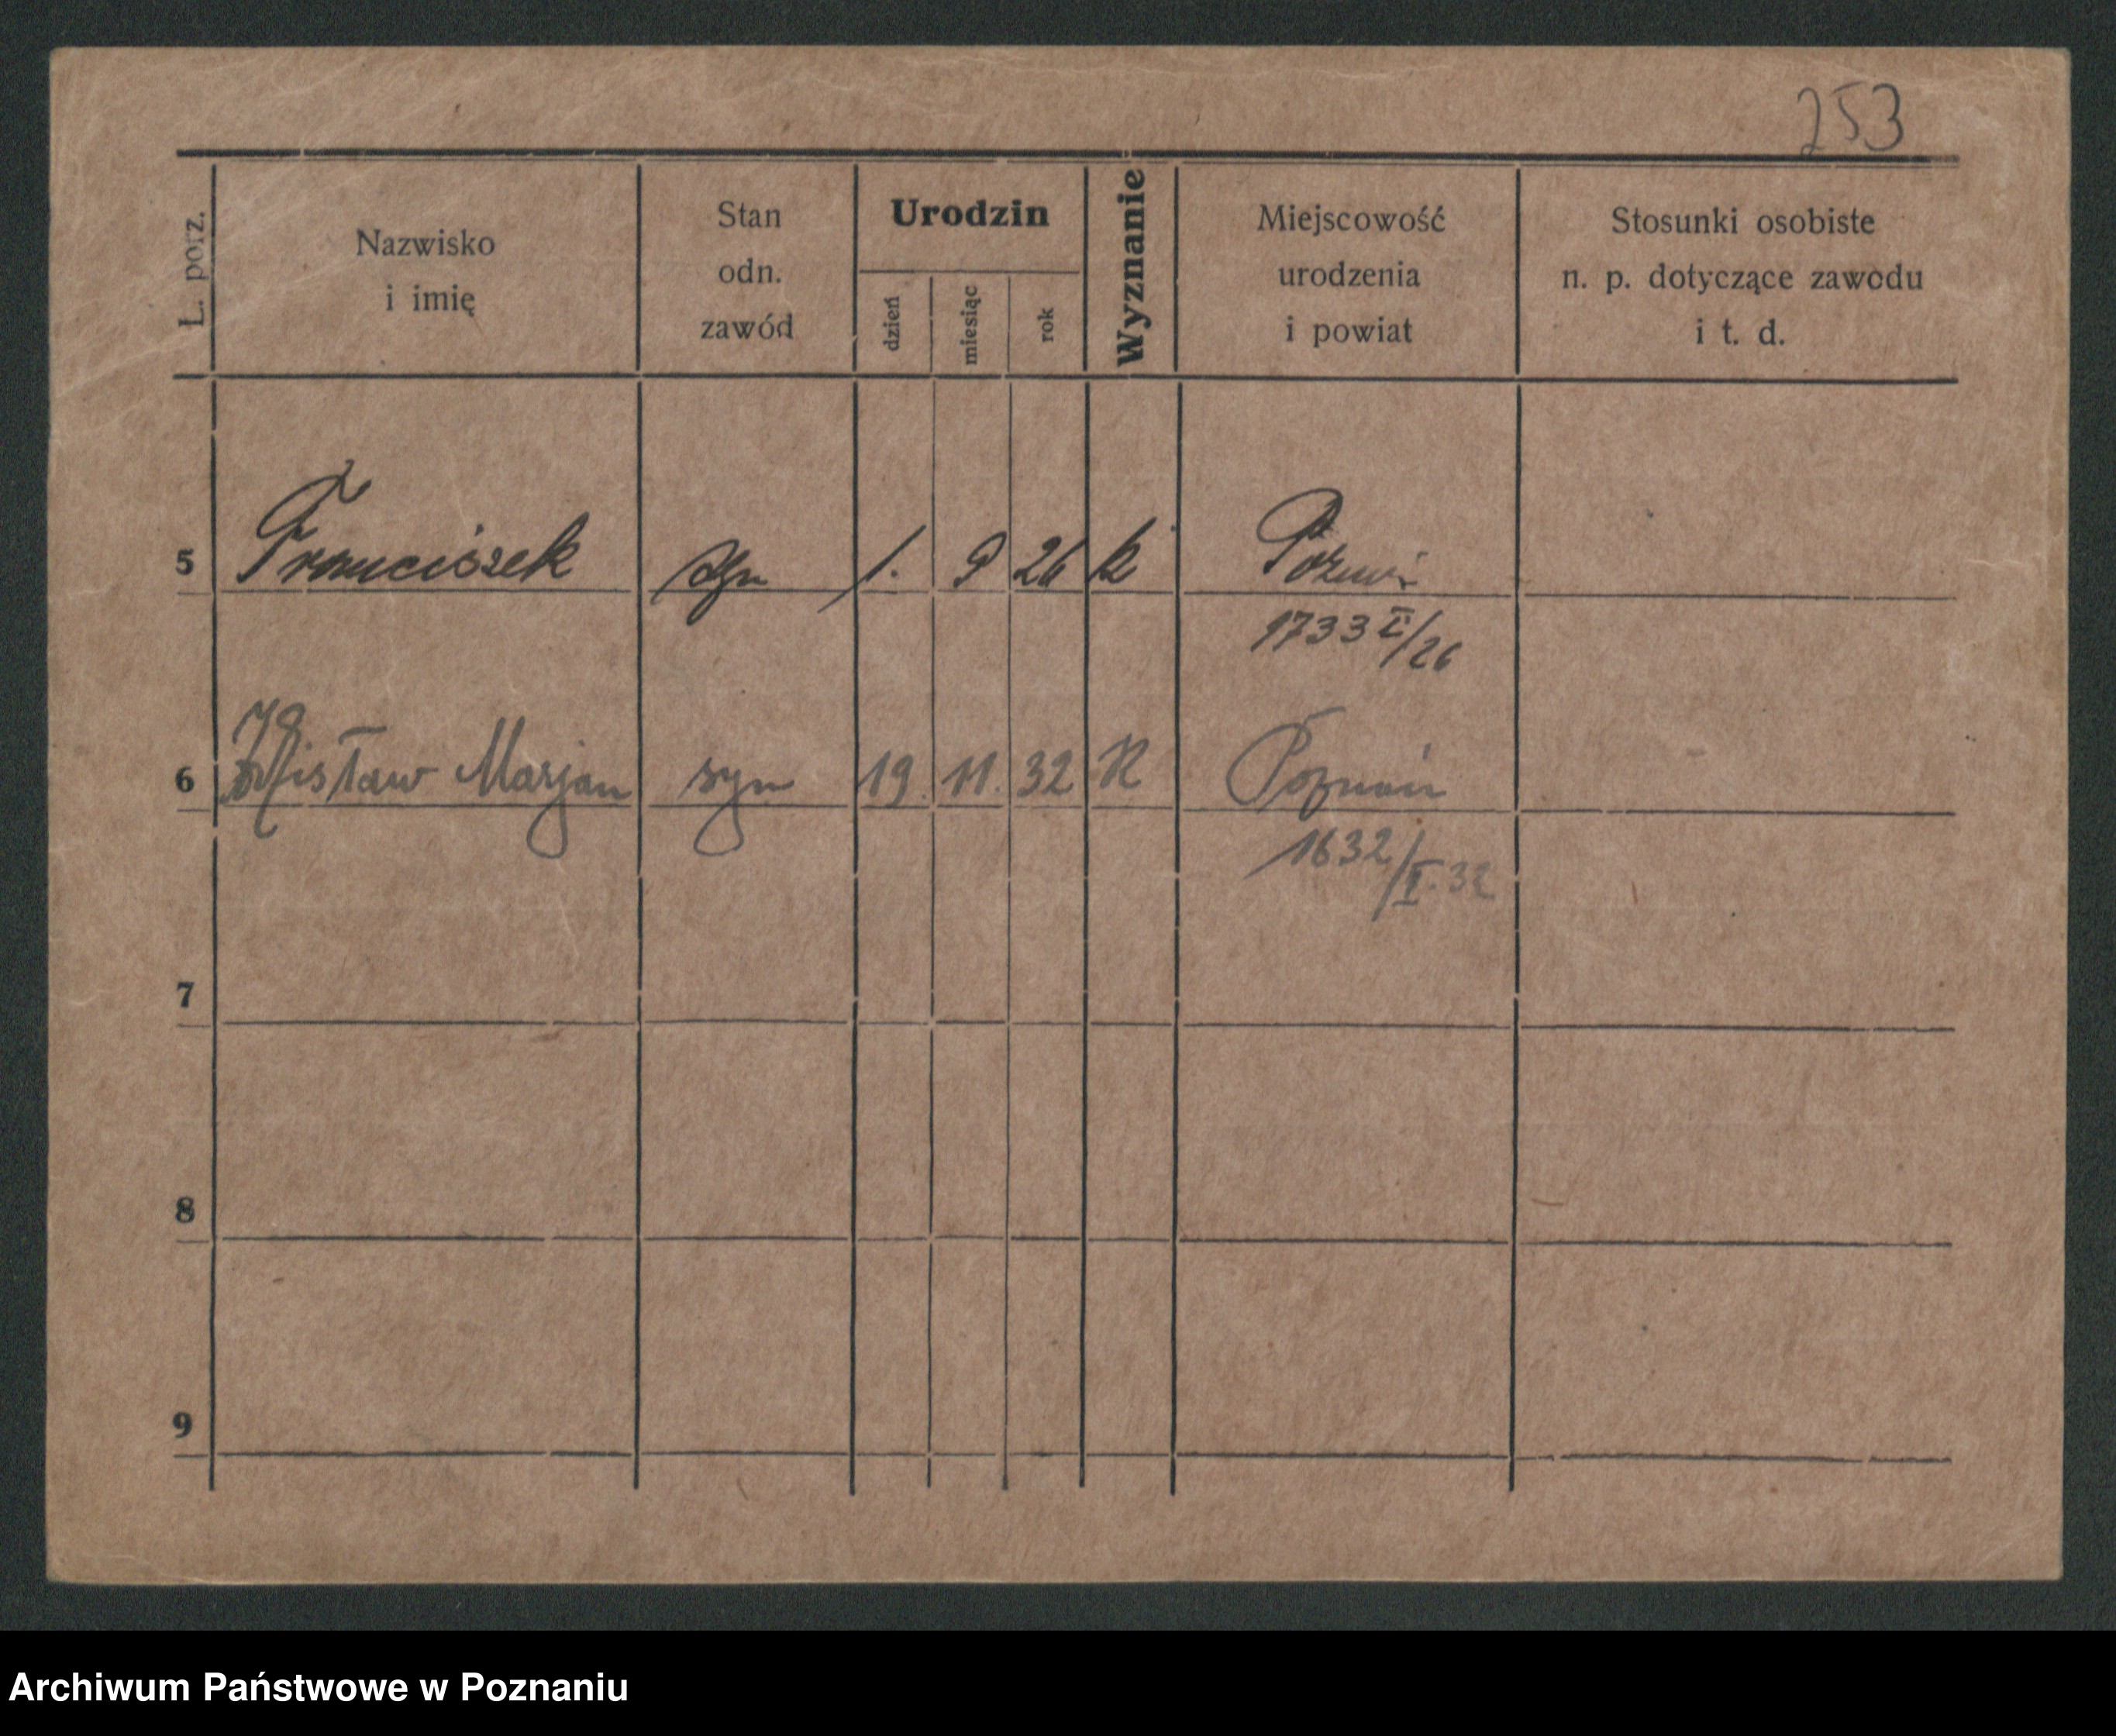 253
L. porz.
Nazwisko
i imię
Stan
odn.
zawód
Urodzin
dzień
miesiąc
rok
Wyznanie
Miejscowość
urodzenia
i powiat
Stosunki osobiste
n. p. dotyczące zawodu
i t. d.
5 Franciszek syn 1. 9 26 k Poznań
1733 II/26
6 Marjan syn 19. 11. 32 K Poznań
1632/II.32
7
8
9
Archiwum Państwowe w Poznaniu